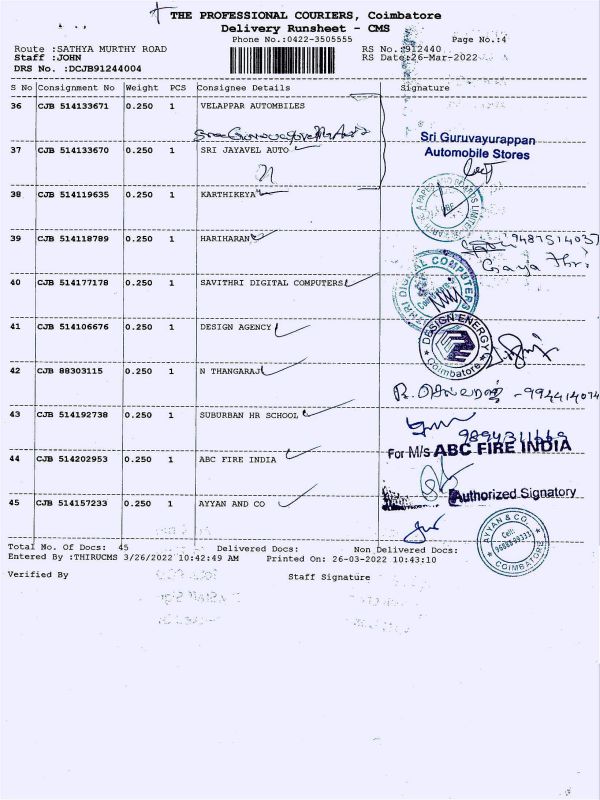 THE PROFESSIONAL COURIERS, Coimbatore
Delivery Runsheet - CMS
Phone No.:0422-3505555 Page No.:4
Route :SATHYA MURTHY ROAD RS No.:912440
Staff :JOHN RS Date:26-Mar-2022
DRS No. :DCJB91244004
S No Consignment No Weight PCS Consignee Details Signature
36 CJB 514133671 0.250 1 VELAPPAR AUTOMBILES
Sri Guruvayurappan
Automobile Stores
37 CJB 514133670 0.250 1 SRI JAYAVEL AUTO
38 CJB 514119635 0.250 1 KARTHIKEYA
39 CJB 514118789 0.250 1 HARIHARAN 9487514037
Gayathri
40 CJB 514177178 0.250 1 SAVITHRI DIGITAL COMPUTERS
41 CJB 514106676 0.250 1 DESIGN AGENCY
DESIGN ENERGY
Coimbatore
42 CJB 88303115 0.250 1 N THANGARAJ
R. செல்வராஜ் - 994414074
43 CJB 514192738 0.250 1 SUBURBAN HR SCHOOL
For M/s ABC FIRE INDIA
44 CJB 514202953 0.250 1 ABC FIRE INDIA
Authorized Signatory
45 CJB 514157233 0.250 1 AYYAN AND CO
AYYAN & CO.
Cell:
COIMBATORE
Total No. Of Docs: 45 Delivered Docs: Non Delivered Docs:
Entered By :THIRUCMS 3/26/2022 10:42:49 AM Printed On: 26-03-2022 10:43:10
Verified By Staff Signature